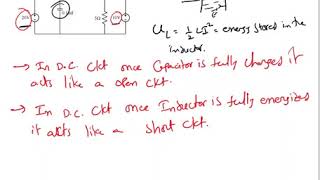 20V
5Ω
10V
U_L = ½ LI² = energy stored in the
inductor.
→ In D.C. Ckt once Capacitor is fully charges it
acts like a open ckt.
→ In D.C. Ckt once Inductor is fully energizes
it acts like a short ckt.